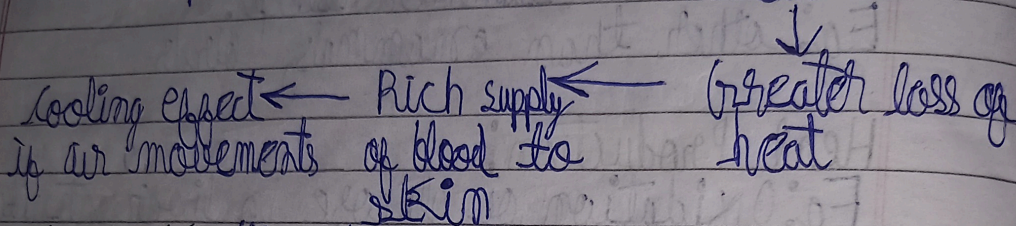 Cooling effect ← Rich supply ← Greater loss of
if air movements of blood to heat
skin